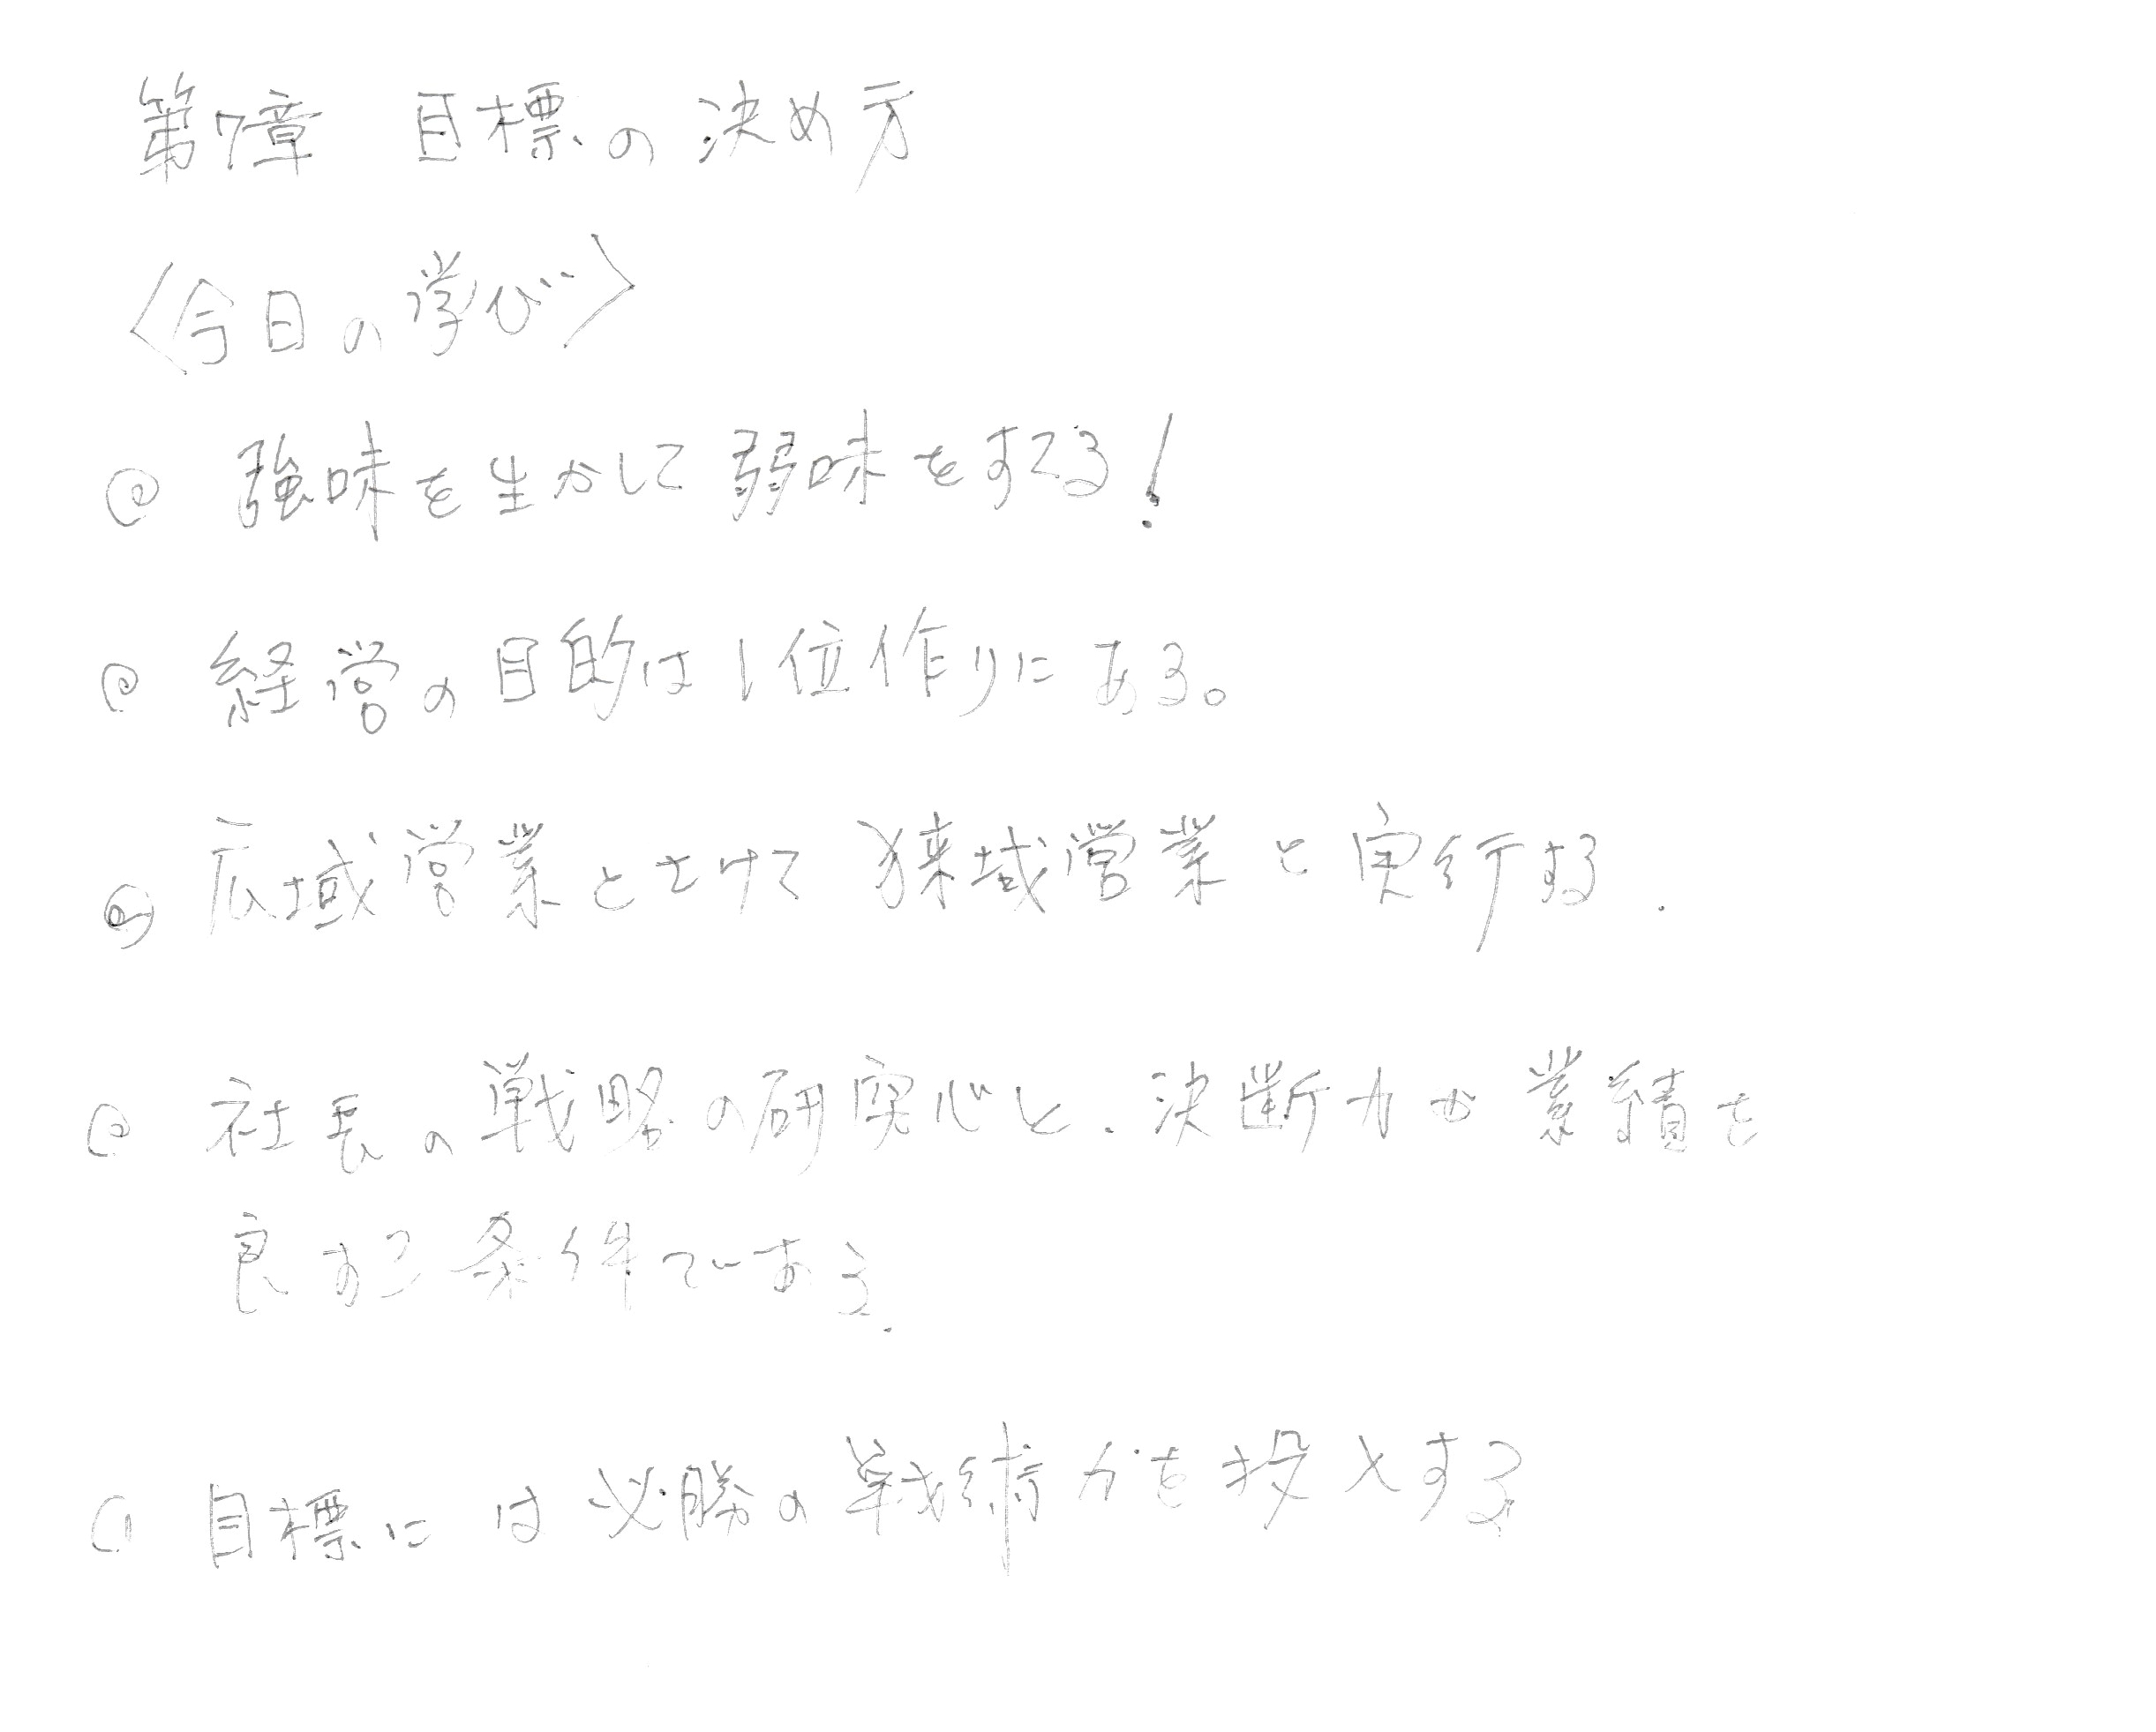 第7章 目標の決め方
〈今日の学び〉
◎ 強味を生かして弱味をすてる!
◎ 経営の目的は1位作りにある。
◎ 広域営業をさけて 狭域営業を実行する.
◎ 社長の戦略の研究心と、決断力が業績を
良する条件である.
◎ 目標には必勝の戦術力を投入する